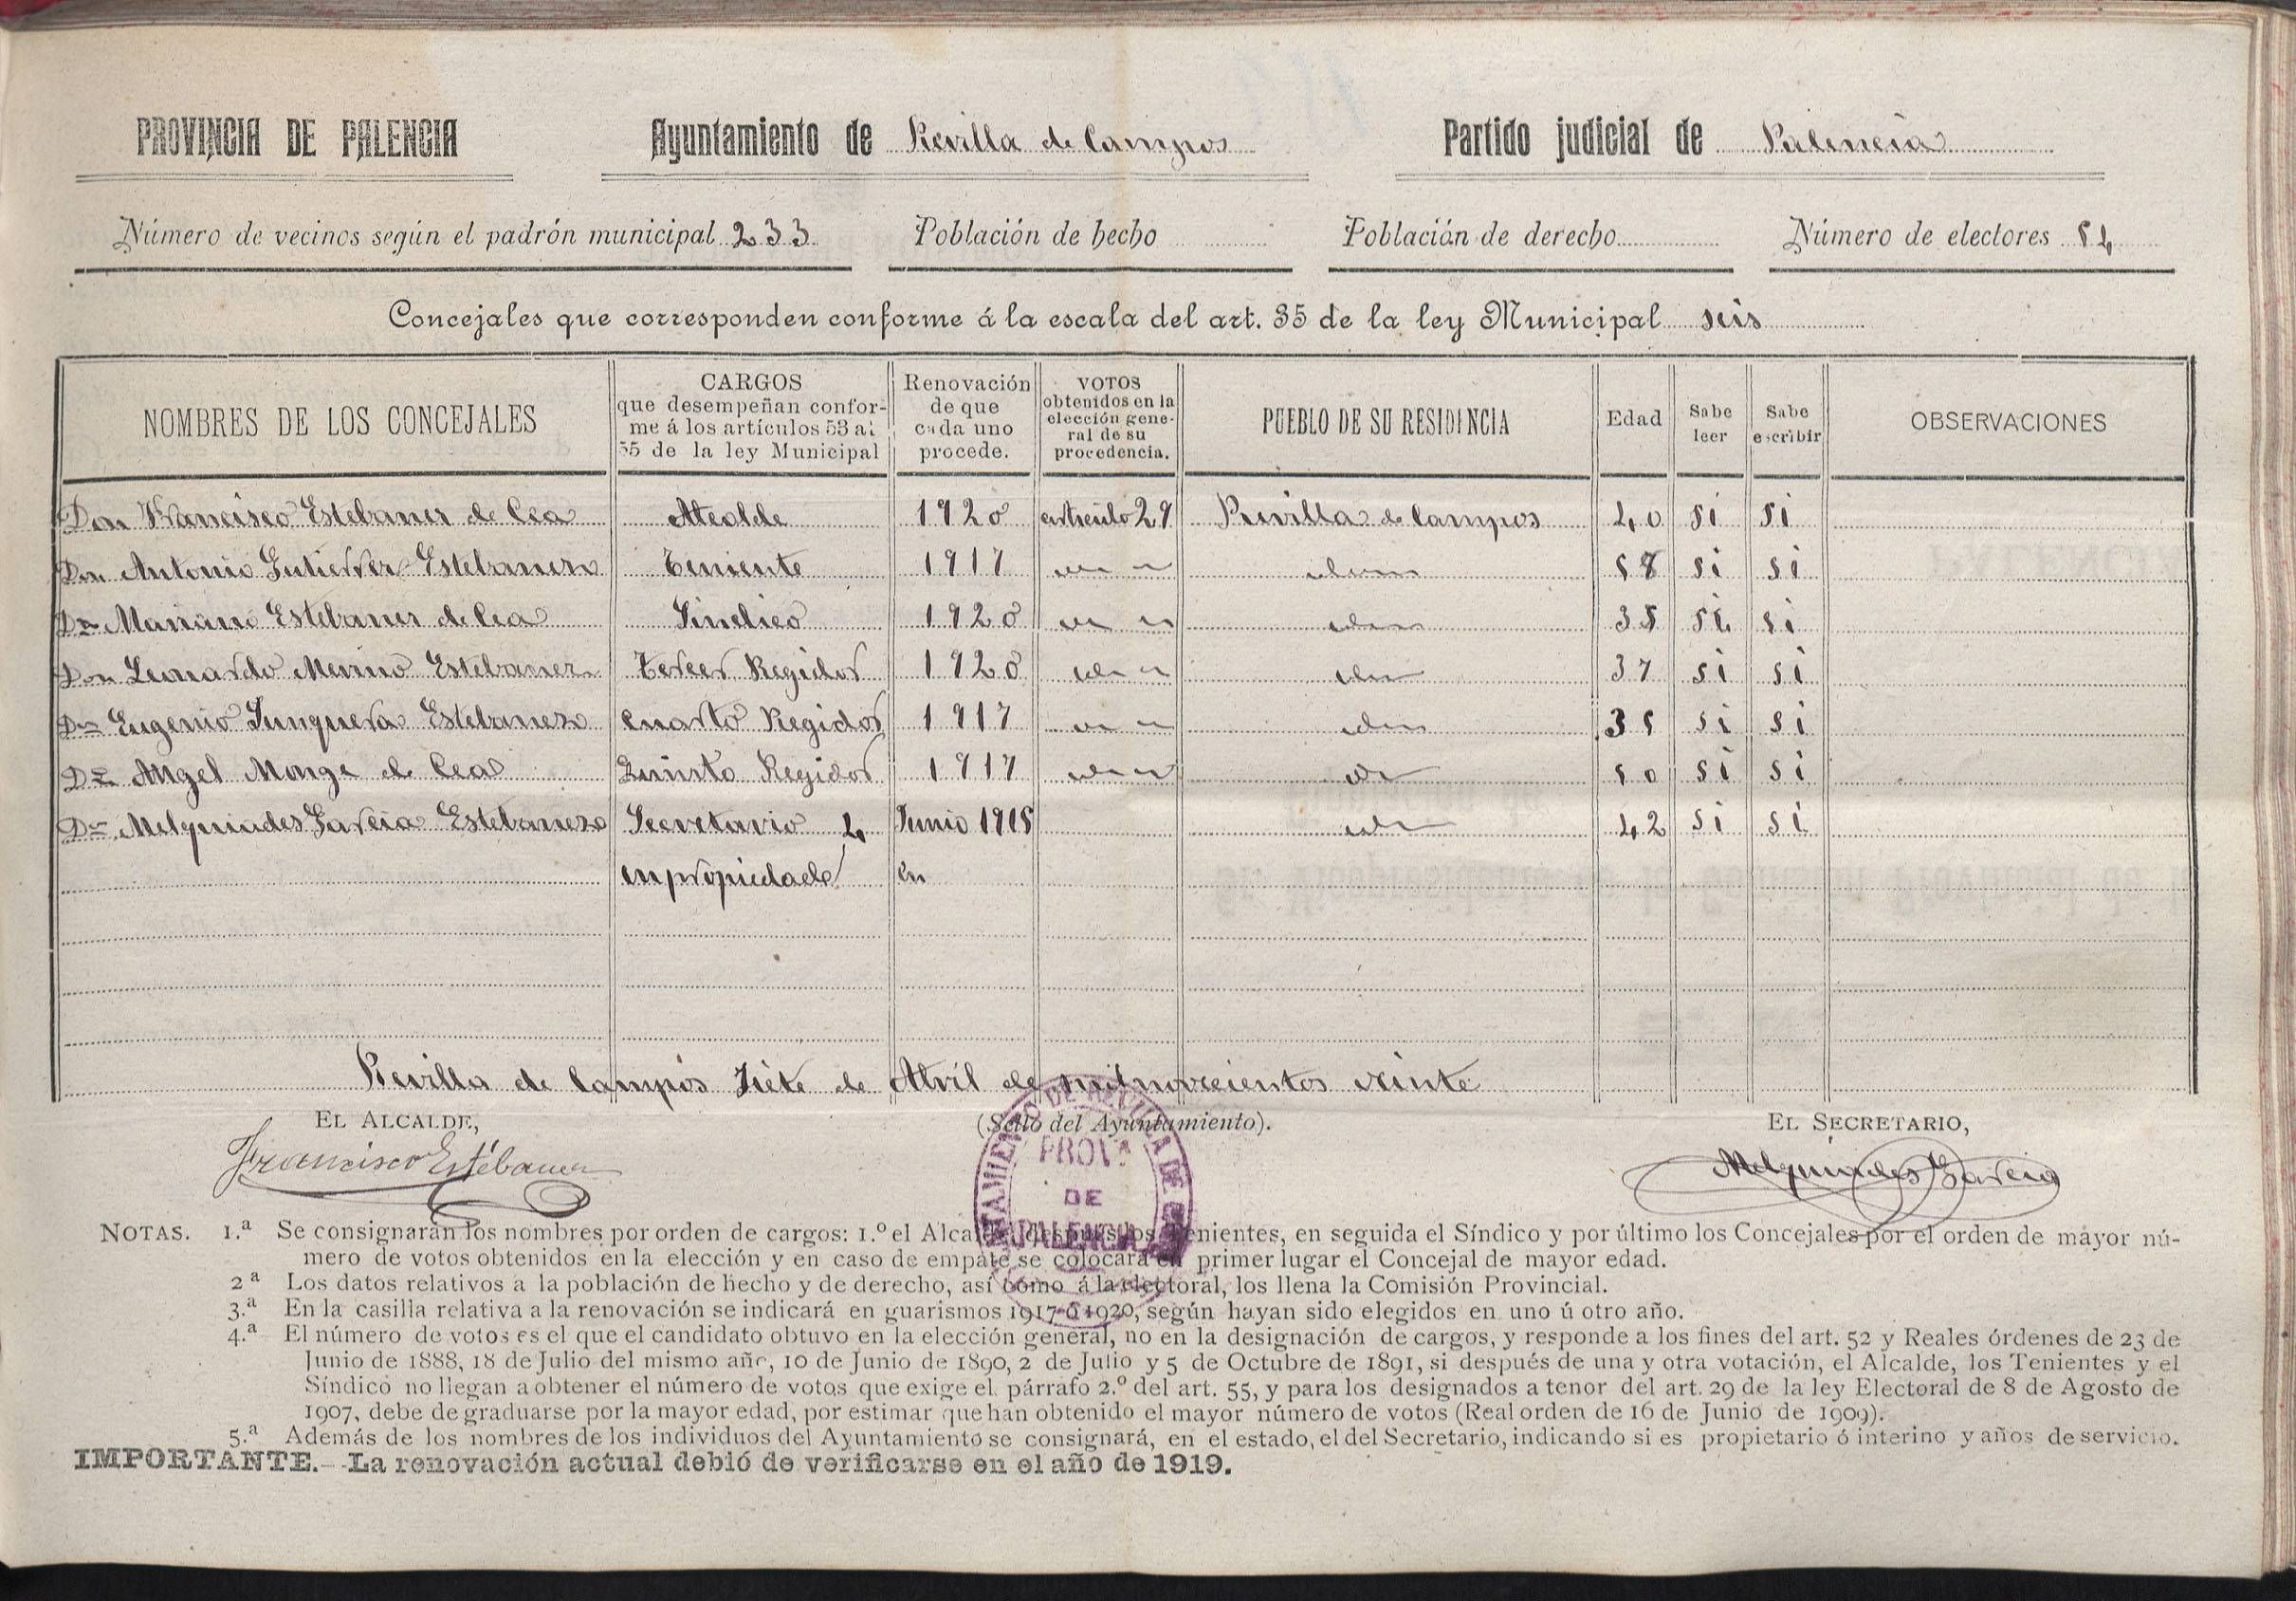 PROVINCIA DE PALENCIA Ayuntamiento de Revilla de Campos Partido judicial de Palencia
Número de vecinos según el padrón municipal 233 Población de hecho Población de derecho Número de electores 54
Concejales que corresponden conforme á la escala del art. 35 de la ley Municipal seis
NOMBRES DE LOS CONCEJALES
CARGOS
que desempeñan confor-
me á los artículos 53 al
55 de la ley Municipal
Renovación
de que
cada uno
procede.
VOTOS
obtenidos en la
elección gene-
ral de su
procedencia.
PUEBLO DE SU RESIDENCIA
Edad
Sabe
leer
Sabe
escribir
OBSERVACIONES
Don Francisco Estebanez de Cea Alcalde 1920 artículo 29 Revilla de Campos 40 si si
Don Antonio Gutierrez Estebanez Teniente 1917 idem 58 si si
Dn Mariano Estebanez de Cea Sindico 1920 idem 35 si si
Don Leonardo Merino Estebanez Tercer Regidor 1920 idem 37 si si
Dn Eugenio Junquera Estebanez Cuarto Regidor 1917 idem 35 si si
Dn Angel Monge de Cea Quinto Regidor 1917 id 50 si si
Dn Melquiades Garcia Estebanez Secretario 4 Junio 1915 id 42 si si
en propiedad en
Revilla de Campos Siete de Abril de mil novecientos veinte
EL ALCALDE, (Sello del Ayuntamiento). EL SECRETARIO,
Francisco Estébanez Melquiades Garcia
AYUNTAMIENTO DE REVILLA DE
PROVA
DE
PALENCIA
NOTAS. 1.ª Se consignarán los nombres por orden de cargos: 1.º el Alcalde, después los Tenientes, en seguida el Síndico y por último los Concejales por el orden de mayor nú-
mero de votos obtenidos en la elección y en caso de empate se colocará en primer lugar el Concejal de mayor edad.
2ª Los datos relativos a la población de hecho y de derecho, así como á la electoral, los llena la Comisión Provincial.
3.ª En la casilla relativa a la renovación se indicará en guarismos 1917 ó 1920, según hayan sido elegidos en uno ú otro año.
4.ª El número de votos es el que el candidato obtuvo en la elección general, no en la designación de cargos, y responde a los fines del art. 52 y Reales órdenes de 23 de
Junio de 1888, 18 de Julio del mismo año, 10 de Junio de 1890, 2 de Julio y 5 de Octubre de 1891, si después de una y otra votación, el Alcalde, los Tenientes y el
Síndico no llegan a obtener el número de votos que exige el párrafo 2.º del art. 55, y para los designados a tenor del art. 29 de la ley Electoral de 8 de Agosto de
1907, debe de graduarse por la mayor edad, por estimar que han obtenido el mayor número de votos (Real orden de 16 de Junio de 1909).
5.ª Además de los nombres de los individuos del Ayuntamiento se consignará, en el estado, el del Secretario, indicando si es propietario ó interino y años de servicio.
IMPORTANTE.—La renovación actual debió de verificarse en el año de 1919.